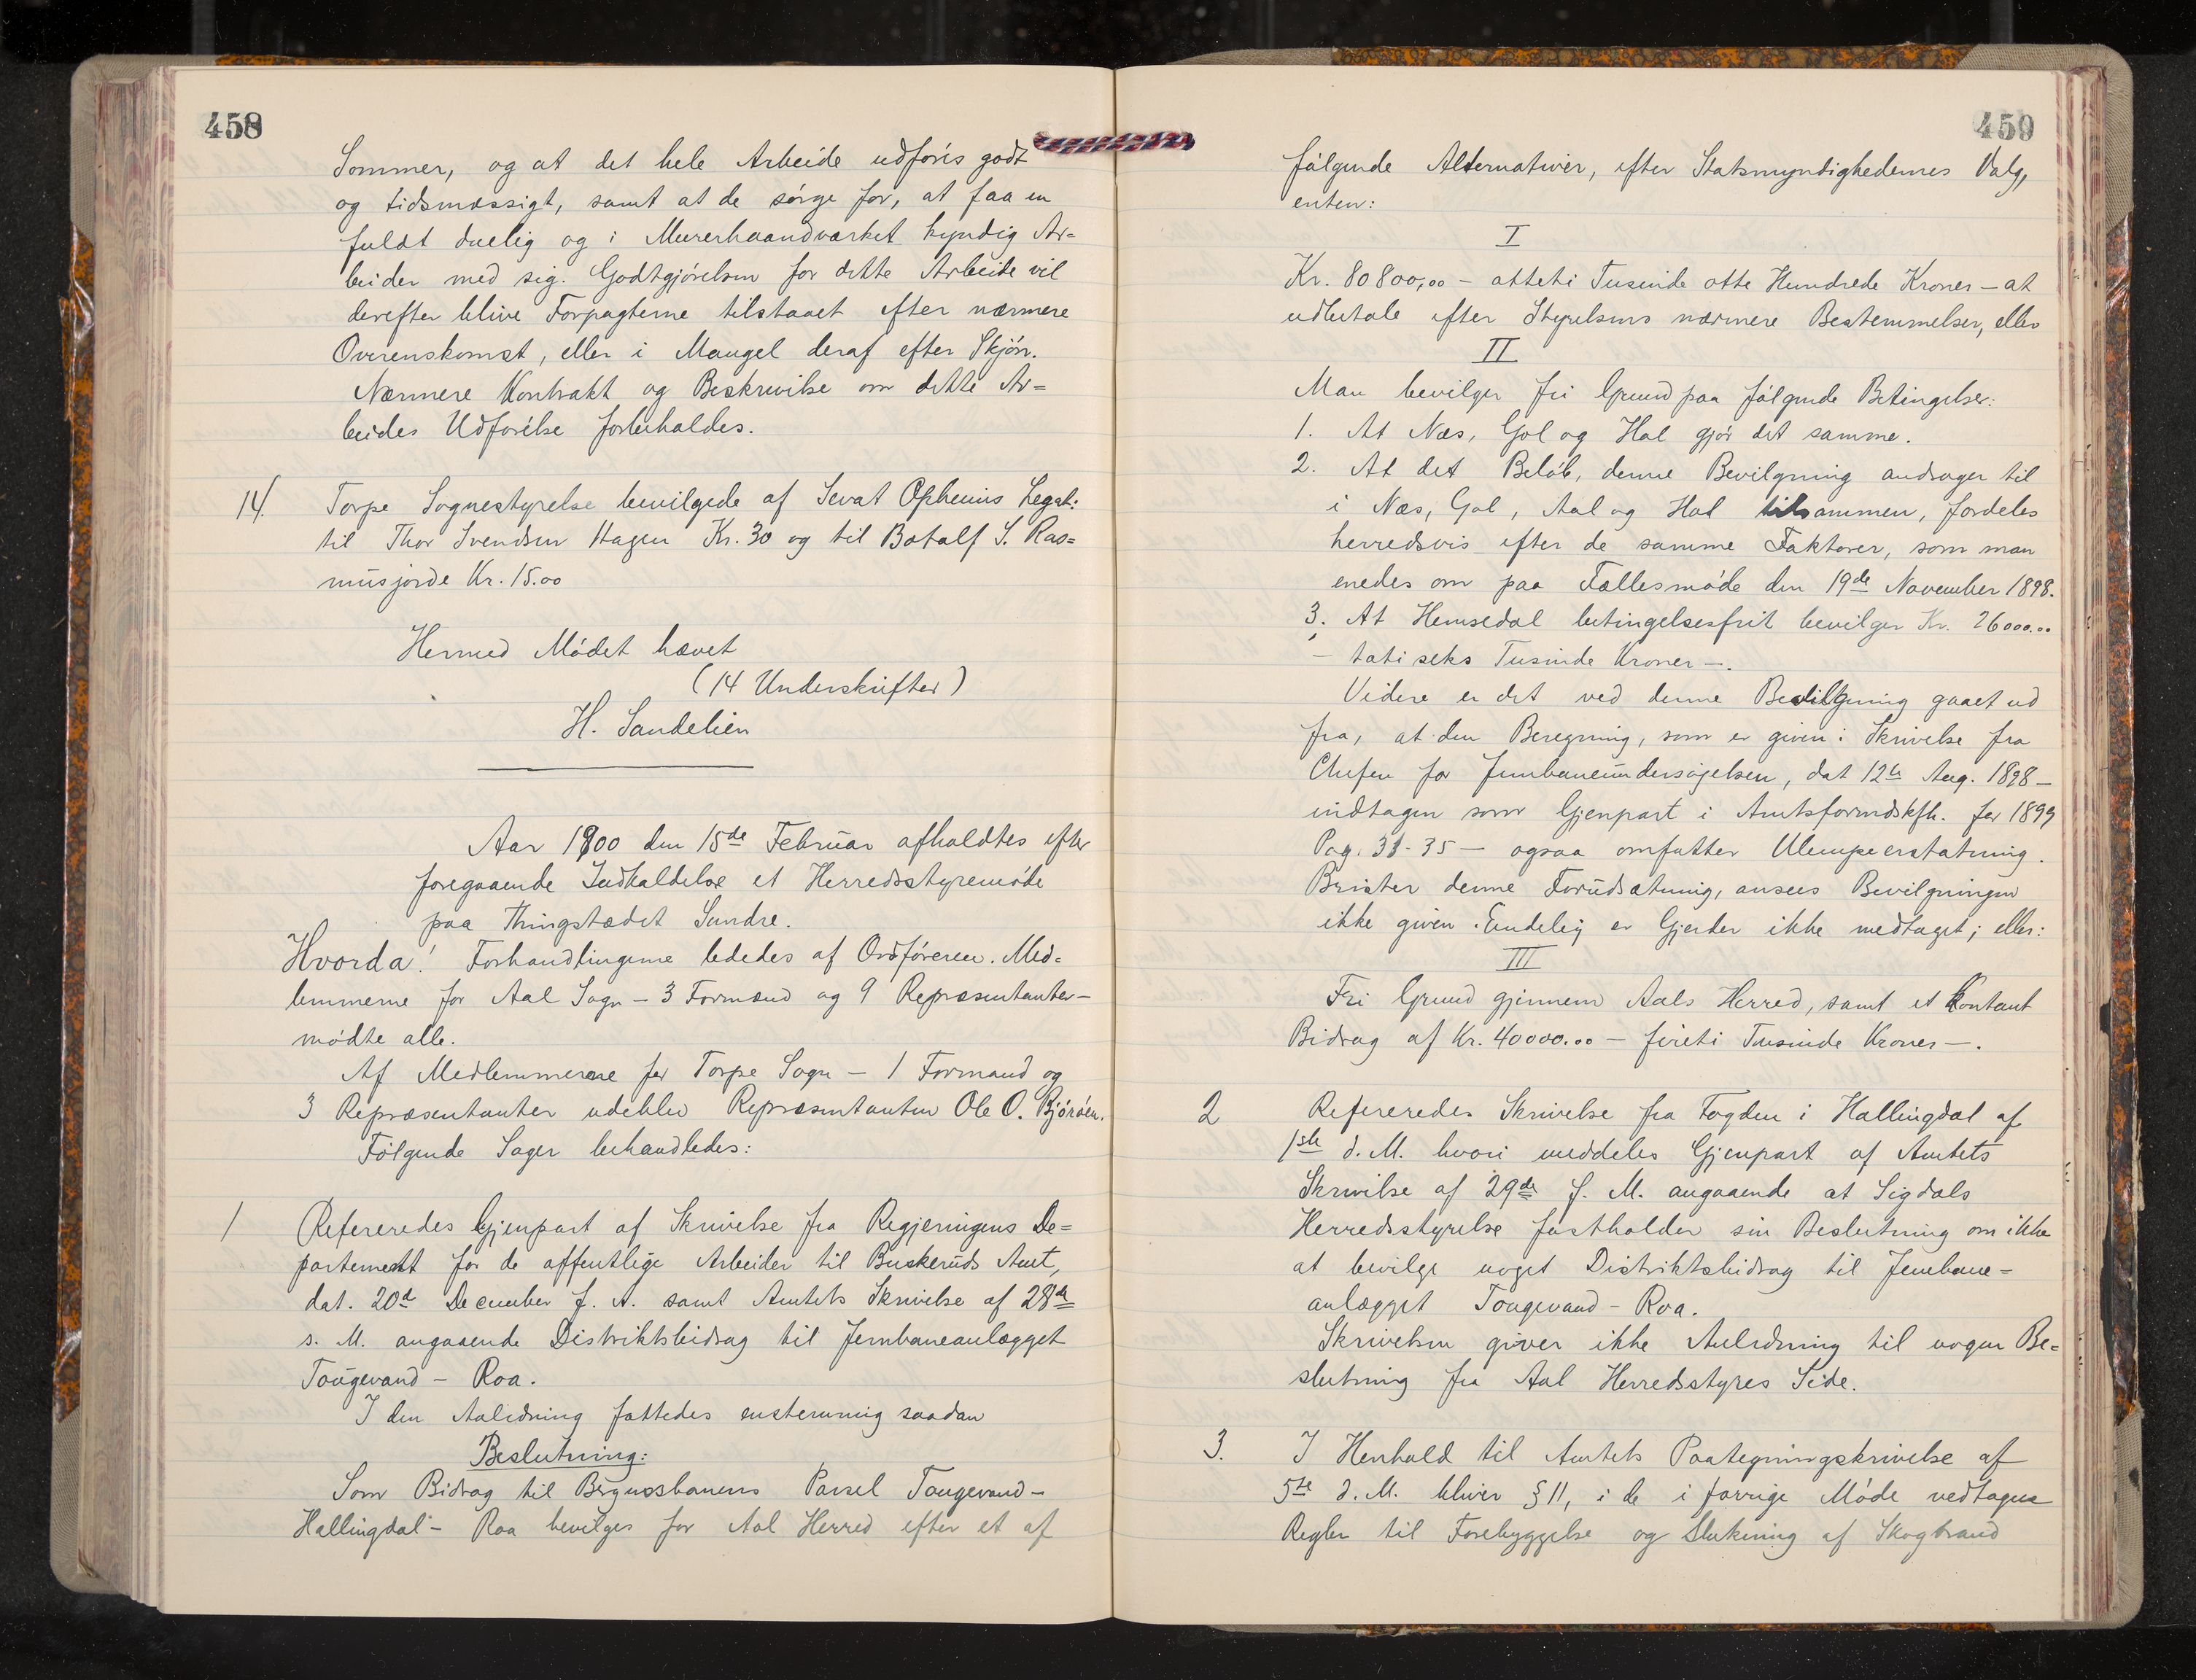 458
Sommer, og at det hele Arbeide udføris godt
og tidsmæssigt, samt at de sørge for, at faa en
fuldt duelig og i Murerhaandværket kyndig Ar=
beider med sig. Godtgjørelsen for dette Arbeide vil
derefter blive Forpagterne tilstaaet efter nærmere
Overenskomst, eller i Mangel deraf efter Skjøn.
Nærmere Kontrakt og Beskrivelse om dette Ar=
beides Udførelse forbeholdes.
14. Torpe Sognestyrelse bevilgede af Sevat Opheims Legat:
til Thor Svendsen Hagen Kr. 30 og til Botolf S. Ras=
musjorde Kr. 15.00
Hermed Mødet hævet
(14 Underskrifter)
H. Sandelien
Aar 1900 den 15de Februar afholdtes efter
foregaaende Indkaldelse et Herredsstyremøde
paa Thingstedet Sundre.
Hvorda! Forhandlingerne lededes af Ordføreren. Med=
lemmerne for Aal Sogn – 3 Formænd og 9 Repræsentanter –
mødte alle.
Af Medlemmerne for Torpe Sogn – 1 Formand og
3 Repræsentanter udeblev Repræsentanten Ole O. Bjøröen.
Følgende Sager behandledes:
1 Refereredes Gjenpart af Skrivelse fra Regjeringens De=
partement for de offentlige Arbeider til Buskeruds Amt,
dat. 20de December f. A. samt Amtets Skrivelse af 28de
s. M. angaaende Distriktsbidrag til Jernbaneanlægget
Tougevand – Roa.
I den Anledning fattedes enstemmig saadan
Beslutning:
Som Bidrag til Bergensbanens Parsel Tougevand –
Hallingdal – Roa bevilges for Aal Herred efter et af
459
følgende Alternativer, efter Statsmyndighedernes Valg,
enten:
I
Kr. 80800,00 – otteti Tusinde otte Hundrede Kroner – at
udbetale efter Styrelsens nærmere Bestemmelser, eller
II
Man bevilger fri Grund paa følgende Betingelser:
1. At Næs, Gol og Hol gjør det samme.
2. At det Beløb, denne Bevilgning andrager til
i Næs, Gol, Aal og Hol tilsammen, fordeles
herredsvis efter de samme Faktorer, som man
enedes om paa Fællesmøde den 19de November 1898.
3. At Hemsedal betingelsesfrit bevilger Kr. 26000.00
– toti seks Tusinde Kroner –.
Videre er det ved denne Bevilgning gaaet ud
fra, at den Beregning, som er given i Skrivelse fra
Chefen for Jernbaneundersøgelsen, dat 12te Aug. 1898 –
indtagen som Gjenpart i Amtsformdskfh. for 1899
Pag. 31-35 – ogsaa omfatter Ulempeerstatning.
Brister denne Forudsætning, ansees Bevilgningen
ikke given. Endelig er Gjerder ikke medtaget; eller:
III
Fri Grund gjennem Aals Herred, samt et kontant
Bidrag af Kr. 40000.00 – fireti Tusinde Kroner –.
2 Refereredes Skrivelse fra Fogden i Hallingdal af
1ste d. M. hvori meddeles Gjenpart af Amtets
Skrivelse af 29de f. M. angaaende at Sigdals
Herredsstyrelse fastholder sin Beslutning om ikke
at bevilge noget Distriktsbidrag til Jernbane=
anlægget Tougevand – Roa.
Skrivelsen giver ikke Anledning til nogen Be=
slutning fra Aal Herredsstyres Side.
3. I Henhold til Amtets Paategningskrivelse af
5te d. M. bliver § 11, i de i forrige Møde vedtagne
Regler til Forebyggelse og Slukning af Skogbrand